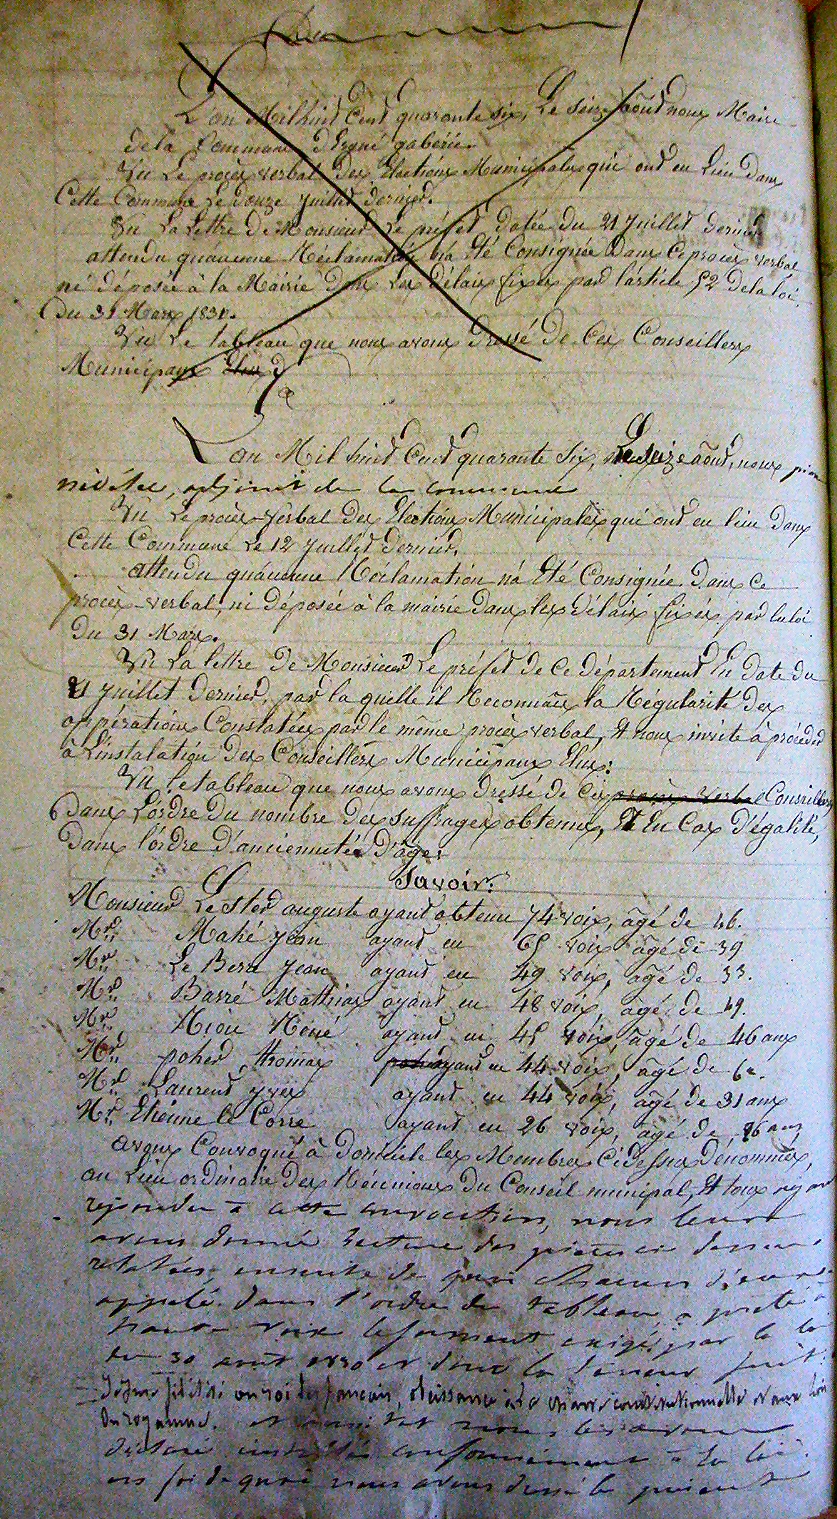 L'an Mil huit Cent quarante six, Le seize août nous Maire
de la Commune d'Ergué gabéric
Vu Le procès verbal des Elections Municipales qui ont eu Lieu dans
Cette Commune Le douze Juillet dernier.
Vu La Lettre de Monsieur Le préfet datée du 21 Juillet dernier
attendu qu'aucune Réclamation n'a été Consignée dans ce procès verbal
ni déposée à la Mairie dans Les délais fixés par l'article 52 de la loi
Du 31 Mars 1831.
Vu Le tableau que nous avons dressé de Ces Conseillers
Municipaux élus
L'an Mil huit Cent quarante Six, Le seize août, nous
adjoint de la commune
Vu Le procès-verbal des Elections Municipales qui ont eu lieu dans
Cette Commune Le 12 Juillet dernier.
attendu qu'aucune Réclamation n'a été Consignée dans ce
procès-verbal, ni déposée à la mairie dans les délais fixés par la loi
du 31 Mars.
Vu La lettre de Monsieur Le préfet de ce département En date du
21 Juillet dernier, par la quelle il Reconnaît la Régularité des
opérations Constatées par le même procès verbal, Et nous invite à procéder
à L'instalation des Conseillers Municipaux Elus.
Vu Le tableau que nous avons dressé de ces procès verbal Conseillers
dans L'ordre du nombre des suffrages obtenus, Et En Cas d'égalité,
Dans l'ordre d'ancienneté d'âge.
Savoir:
Monsieur Le Ster auguste ayant obtenu 74 voix, âgé de 46.
Mr. Mahé Jean ayant eu voix âgé de 39
Mr. Le Berre Jean ayant eu 49 voix, âgé de 33.
Mr. Barré Mathias ayant eu 48 voix, âgé de 49.
Mr. Riou Réné ayant eu 45 voix, âgé de 46 ans
Mr. poher, thomas ayant eu 44 voix, âgé de
Mr. Laurent yves ayant eu 44 voix, âgé de 31 ans
Mr. Etienne le Corre ayant eu 26 voix, âgé de ans
avons Convoqué à domicile les Membres Cidessus dénommés,
au Lieu ordinaire des Réunions du Conseil municipal, Et tous ayant
repondu à cette convocation, nous leur
avons donné lecture des pièces ci dessus
relatées, ensuite de quoi chacun d'eux
appelé dans l'ordre du tableau a prêté à
haute voix le serment exigé par la loi
du 30 août 1830 et dont la teneur suit:
Je jure fidélité au roi des français, obéissance à la charte constitutionnelle et aux lois
du royaume. et nous les avons
déclaré installés conformément à la loi.
en foi de quoi nous avons dressé le présent